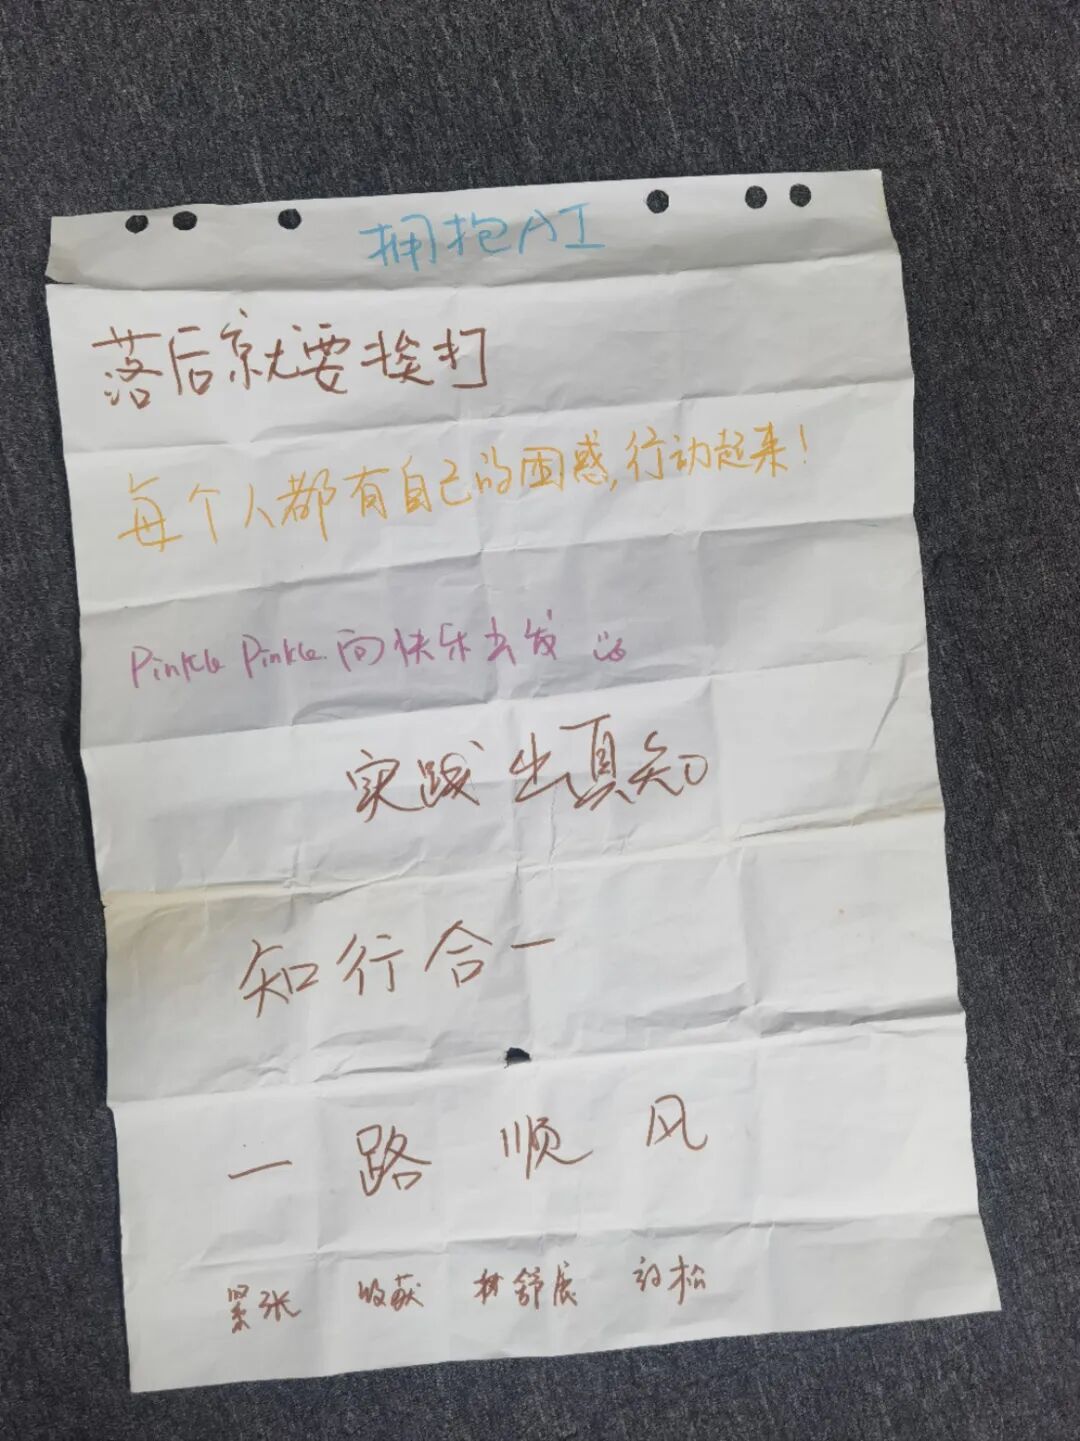 拥抱AI
落后就要挨打
每个人都有自己的困惑,行动起来!
Pinkle Pinkle 向快乐出发
实践出真知
知行合一
一路顺风
紧张 收获 舒展 松